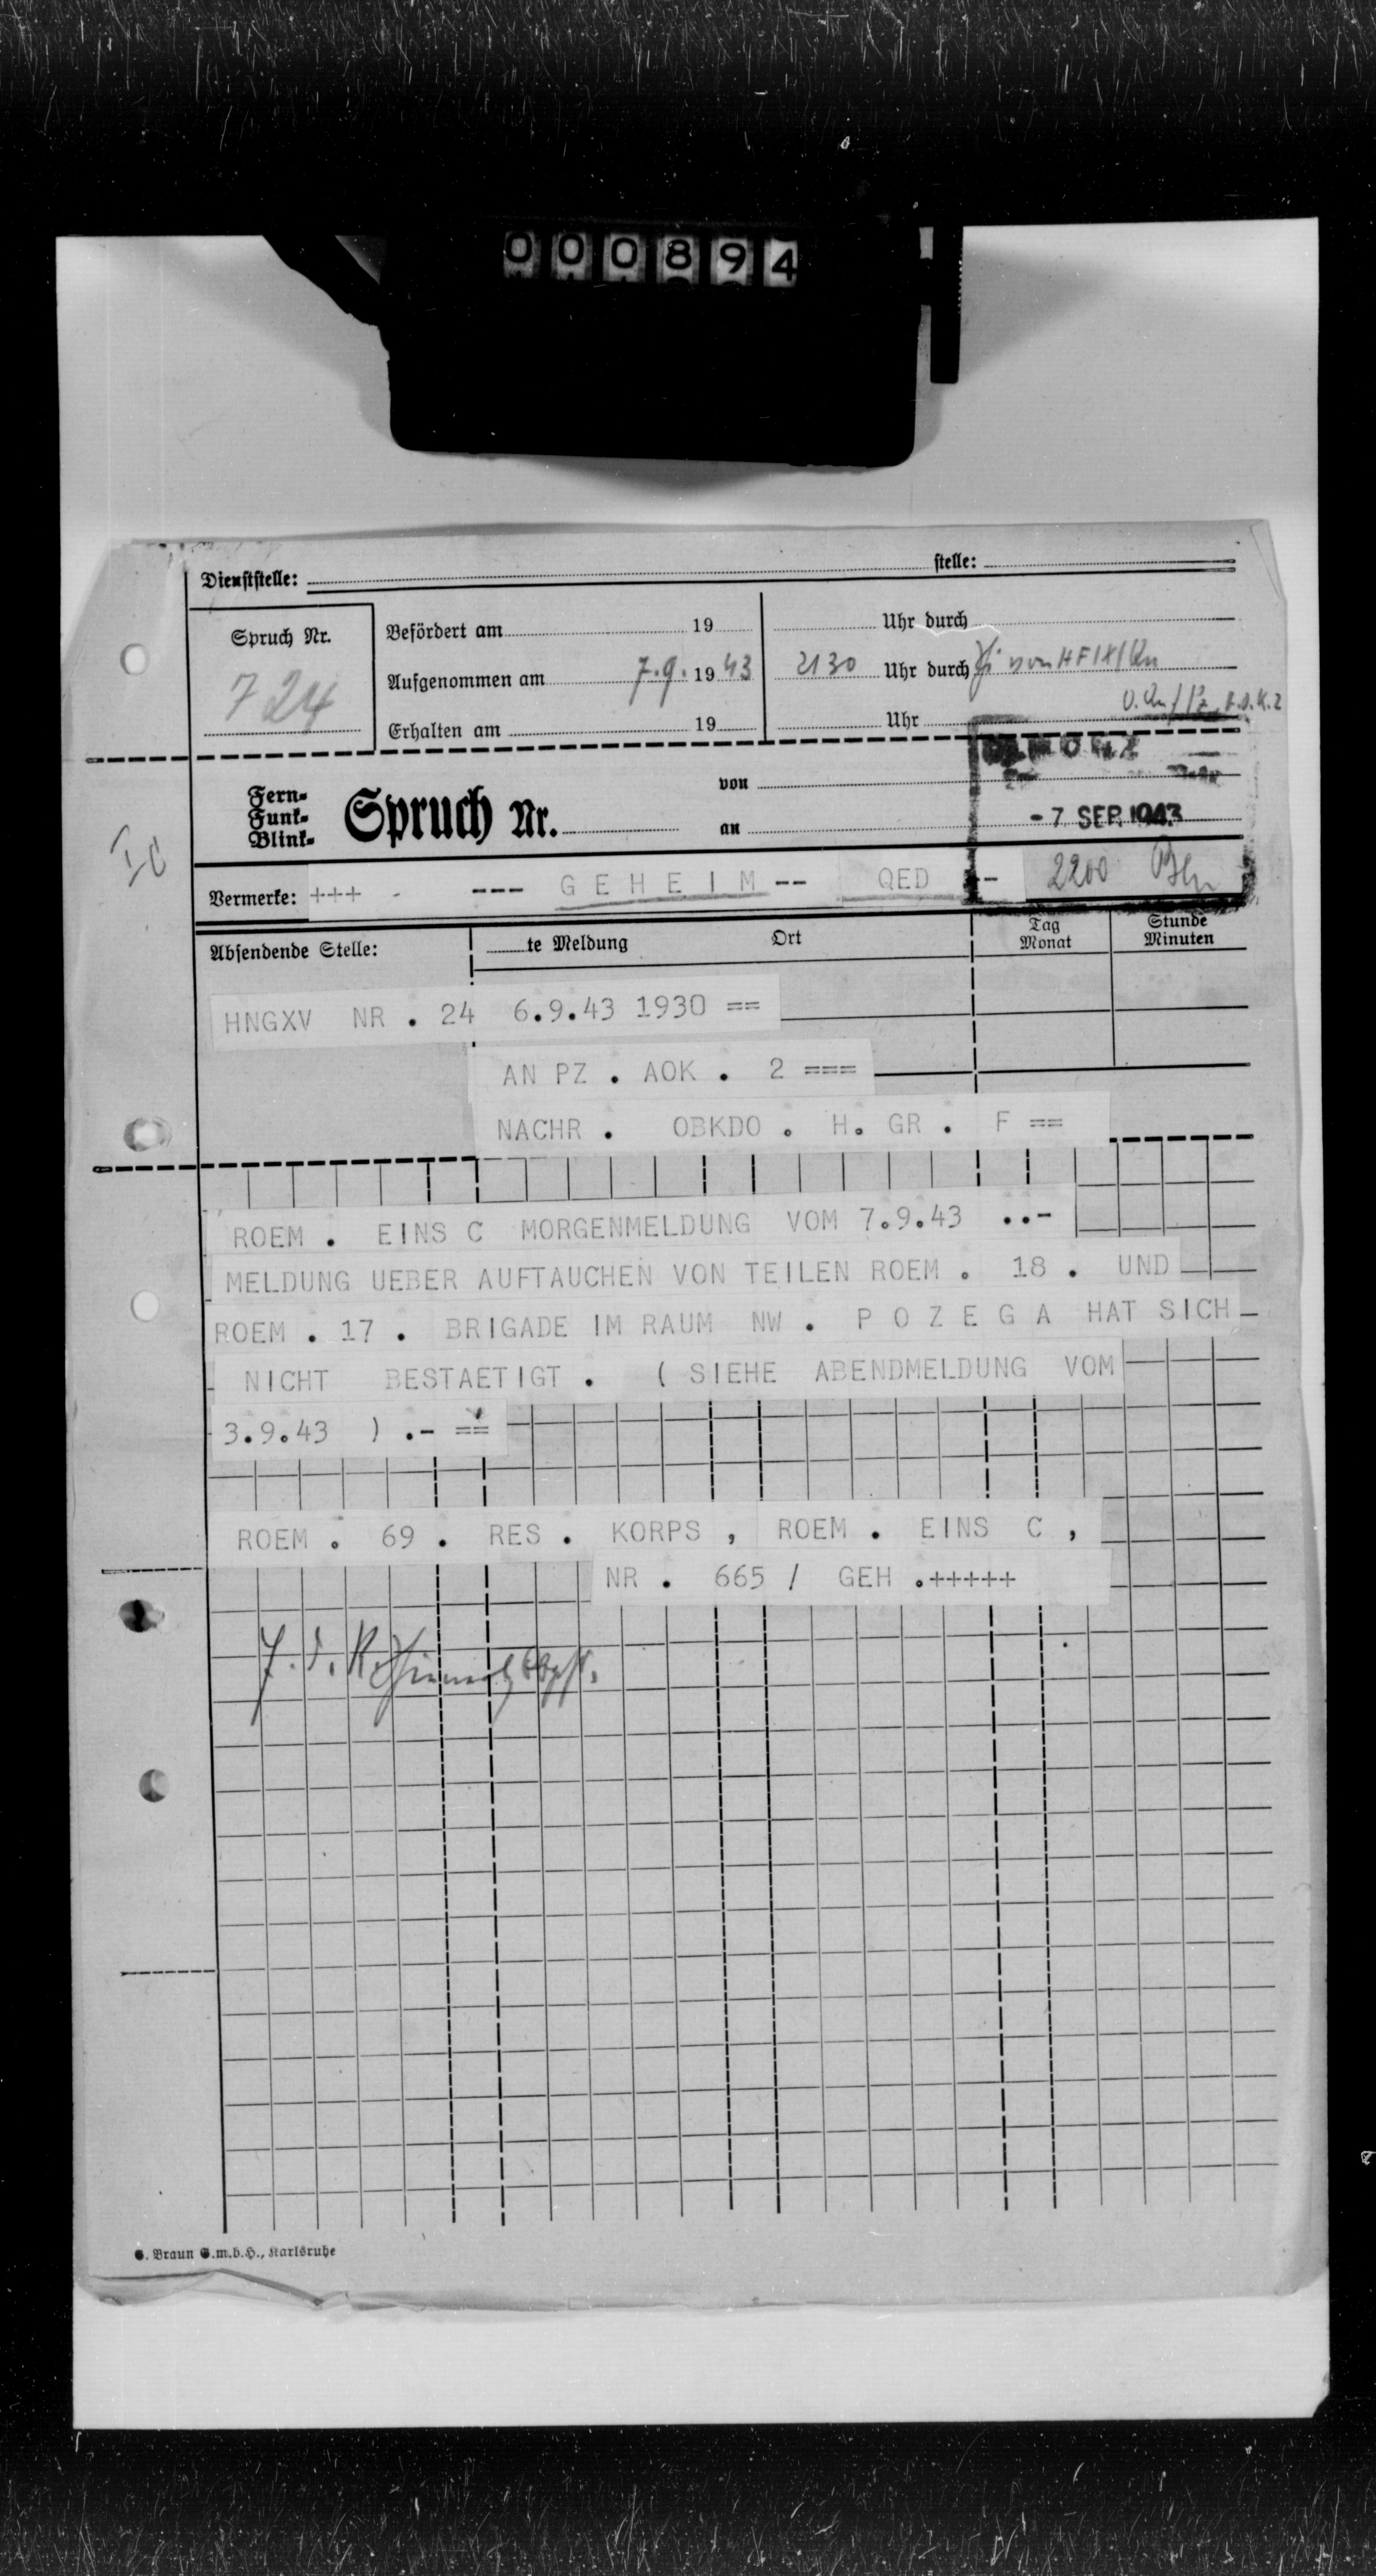 000894
Dienststelle: stelle:
Spruch Nr.
724
Befördert am 19 Uhr durch
Aufgenommen am 7.9. 1943 2130 Uhr durch von HF
Erhalten am 19 Uhr
Fern-
Funk-
Blink-
Spruch Nr.
von
an
- 7. SEP. 1943
Ic
Vermerke: +++ - --- G E H E I M -- QED --
2200
Absendende Stelle: te Meldung Ort Tag Monat Stunde Minuten
HNGXV NR . 24 6.9.43 1930 ==
AN PZ . AOK . 2 ===
NACHR . OBKDO . H. GR . F ==
ROEM . EINS C MORGENMELDUNG VOM 7.9.43 ..-
MELDUNG UEBER AUFTAUCHEN VON TEILEN ROEM . 18 . UND
ROEM . 17 . BRIGADE IM RAUM NW . P O Z E G A HAT SICH
NICHT BESTAETIGT . ( SIEHE ABENDMELDUNG VOM
3.9.43 ) .- ==
ROEM . 69 . RES . KORPS , ROEM . EINS C ,
NR . 665 / GEH .+++++
G. Braun G.m.b.H., Karlsruhe